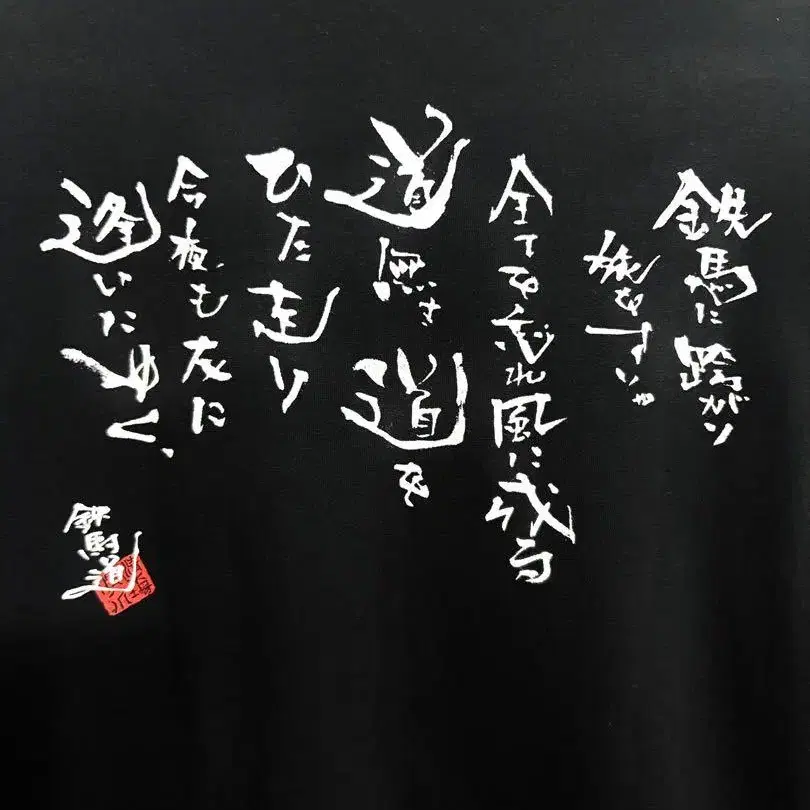 鉄馬に跨がり
旅をすりゃ
全てを忘れ風に成る
道無き道を
ひた走り
今夜も友に
逢いたゆく、
鉄馬道